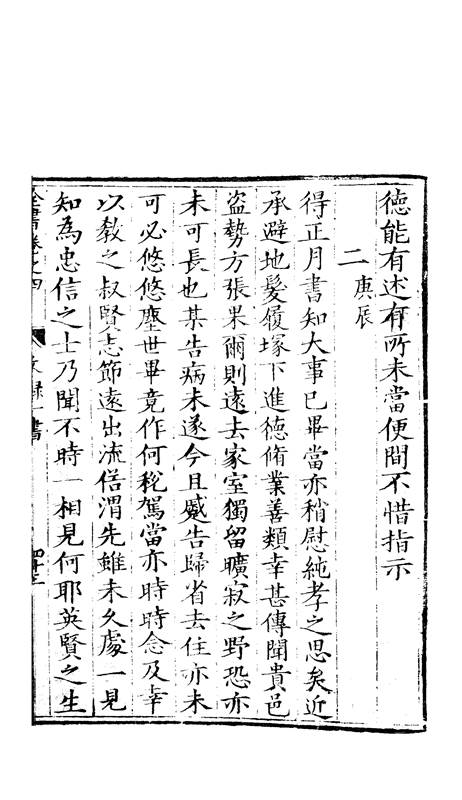 德能有述有所未當便間不惜指示
二 庚辰
得正月書知大事已畢當亦稍慰純孝之思矣近
承避地髮履塚下進德脩業善類幸甚傳聞貴邑
盜勢方張果爾則遠去家室獨留曠寂之野恐亦
未可長也某告病未遂今且蹙告歸省去住亦未
可必悠悠塵世畢竟作何稅駕當亦時時念及幸
以教之叔賢志節遠出流俗渭先雖未久處一見
知為忠信之士乃聞不時一相見何耶英賢之生
全書卷之四 文錄一 書